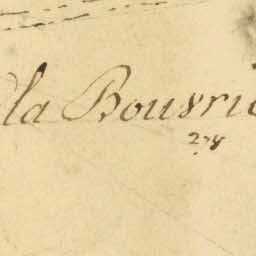 la Bousrie
278